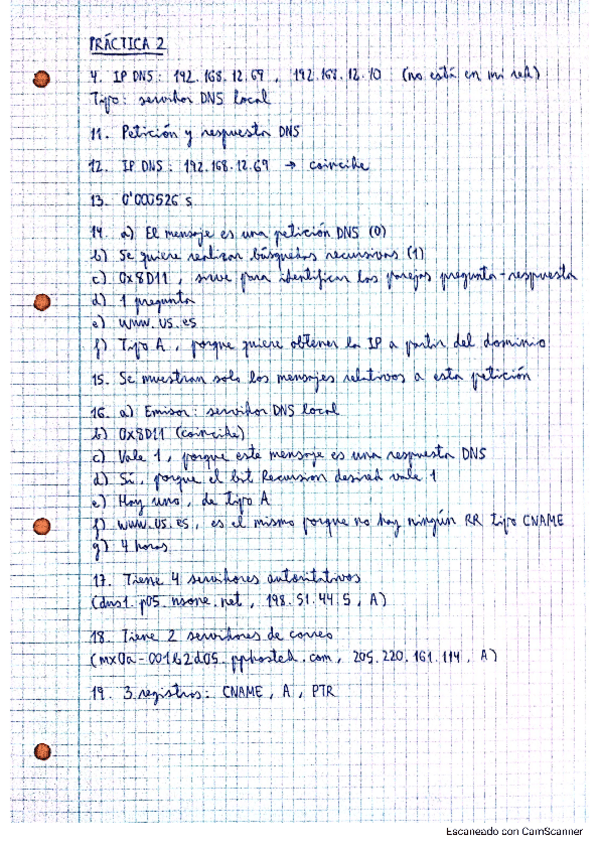 PRÁCTICA 2
4. IP DNS: 192.168.12.69, 192.168.12.10 (no está en mi red)
Tipo: servidor DNS local
11. Petición y respuesta DNS
12. IP DNS: 192.168.12.69 → coincide
13. 0'000526 s
14. a) El mensaje es una petición DNS (0)
b) Se quiere realizar búsquedas recursivas (1)
c) 0x8D11, sirve para identificar las parejas pregunta-respuesta
d) 1 pregunta
e) www.us.es
f) Tipo A, porque quiere obtener la IP a partir del dominio
15. Se muestran solo los mensajes relativos a esta petición
16. a) Emisor: servidor DNS local
b) 0x8D11 (coincide)
c) Vale 1, porque este mensaje es una respuesta DNS
d) Sí, porque el bit Recursion desired vale 1
e) Hay uno, de tipo A
f) www.us.es, es el mismo porque no hay ningún RR tipo CNAME
g) 4 horas
17. Tiene 4 servidores autoritativos
(dns1.p05.nsone.net, 198.51.44.5, A)
18. Tiene 2 servidores de correo
(mx0a-001b2d05.pphosted.com, 205.220.161.114, A)
19. 3 registros: CNAME, A, PTR
Escaneado con CamScanner